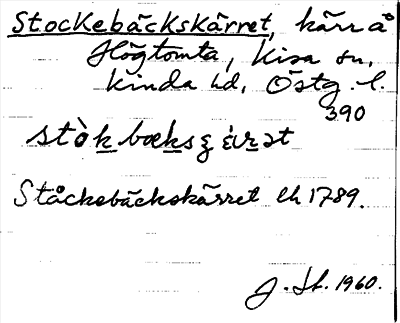 Stockebäckskärret, kärr å
Högtomta, Kisa sn,
Kinda hd, Östg. l.
390
stòkbæksʒ̨èirət
Ståckebäckskärret lh 1789.
J. St. 1960.